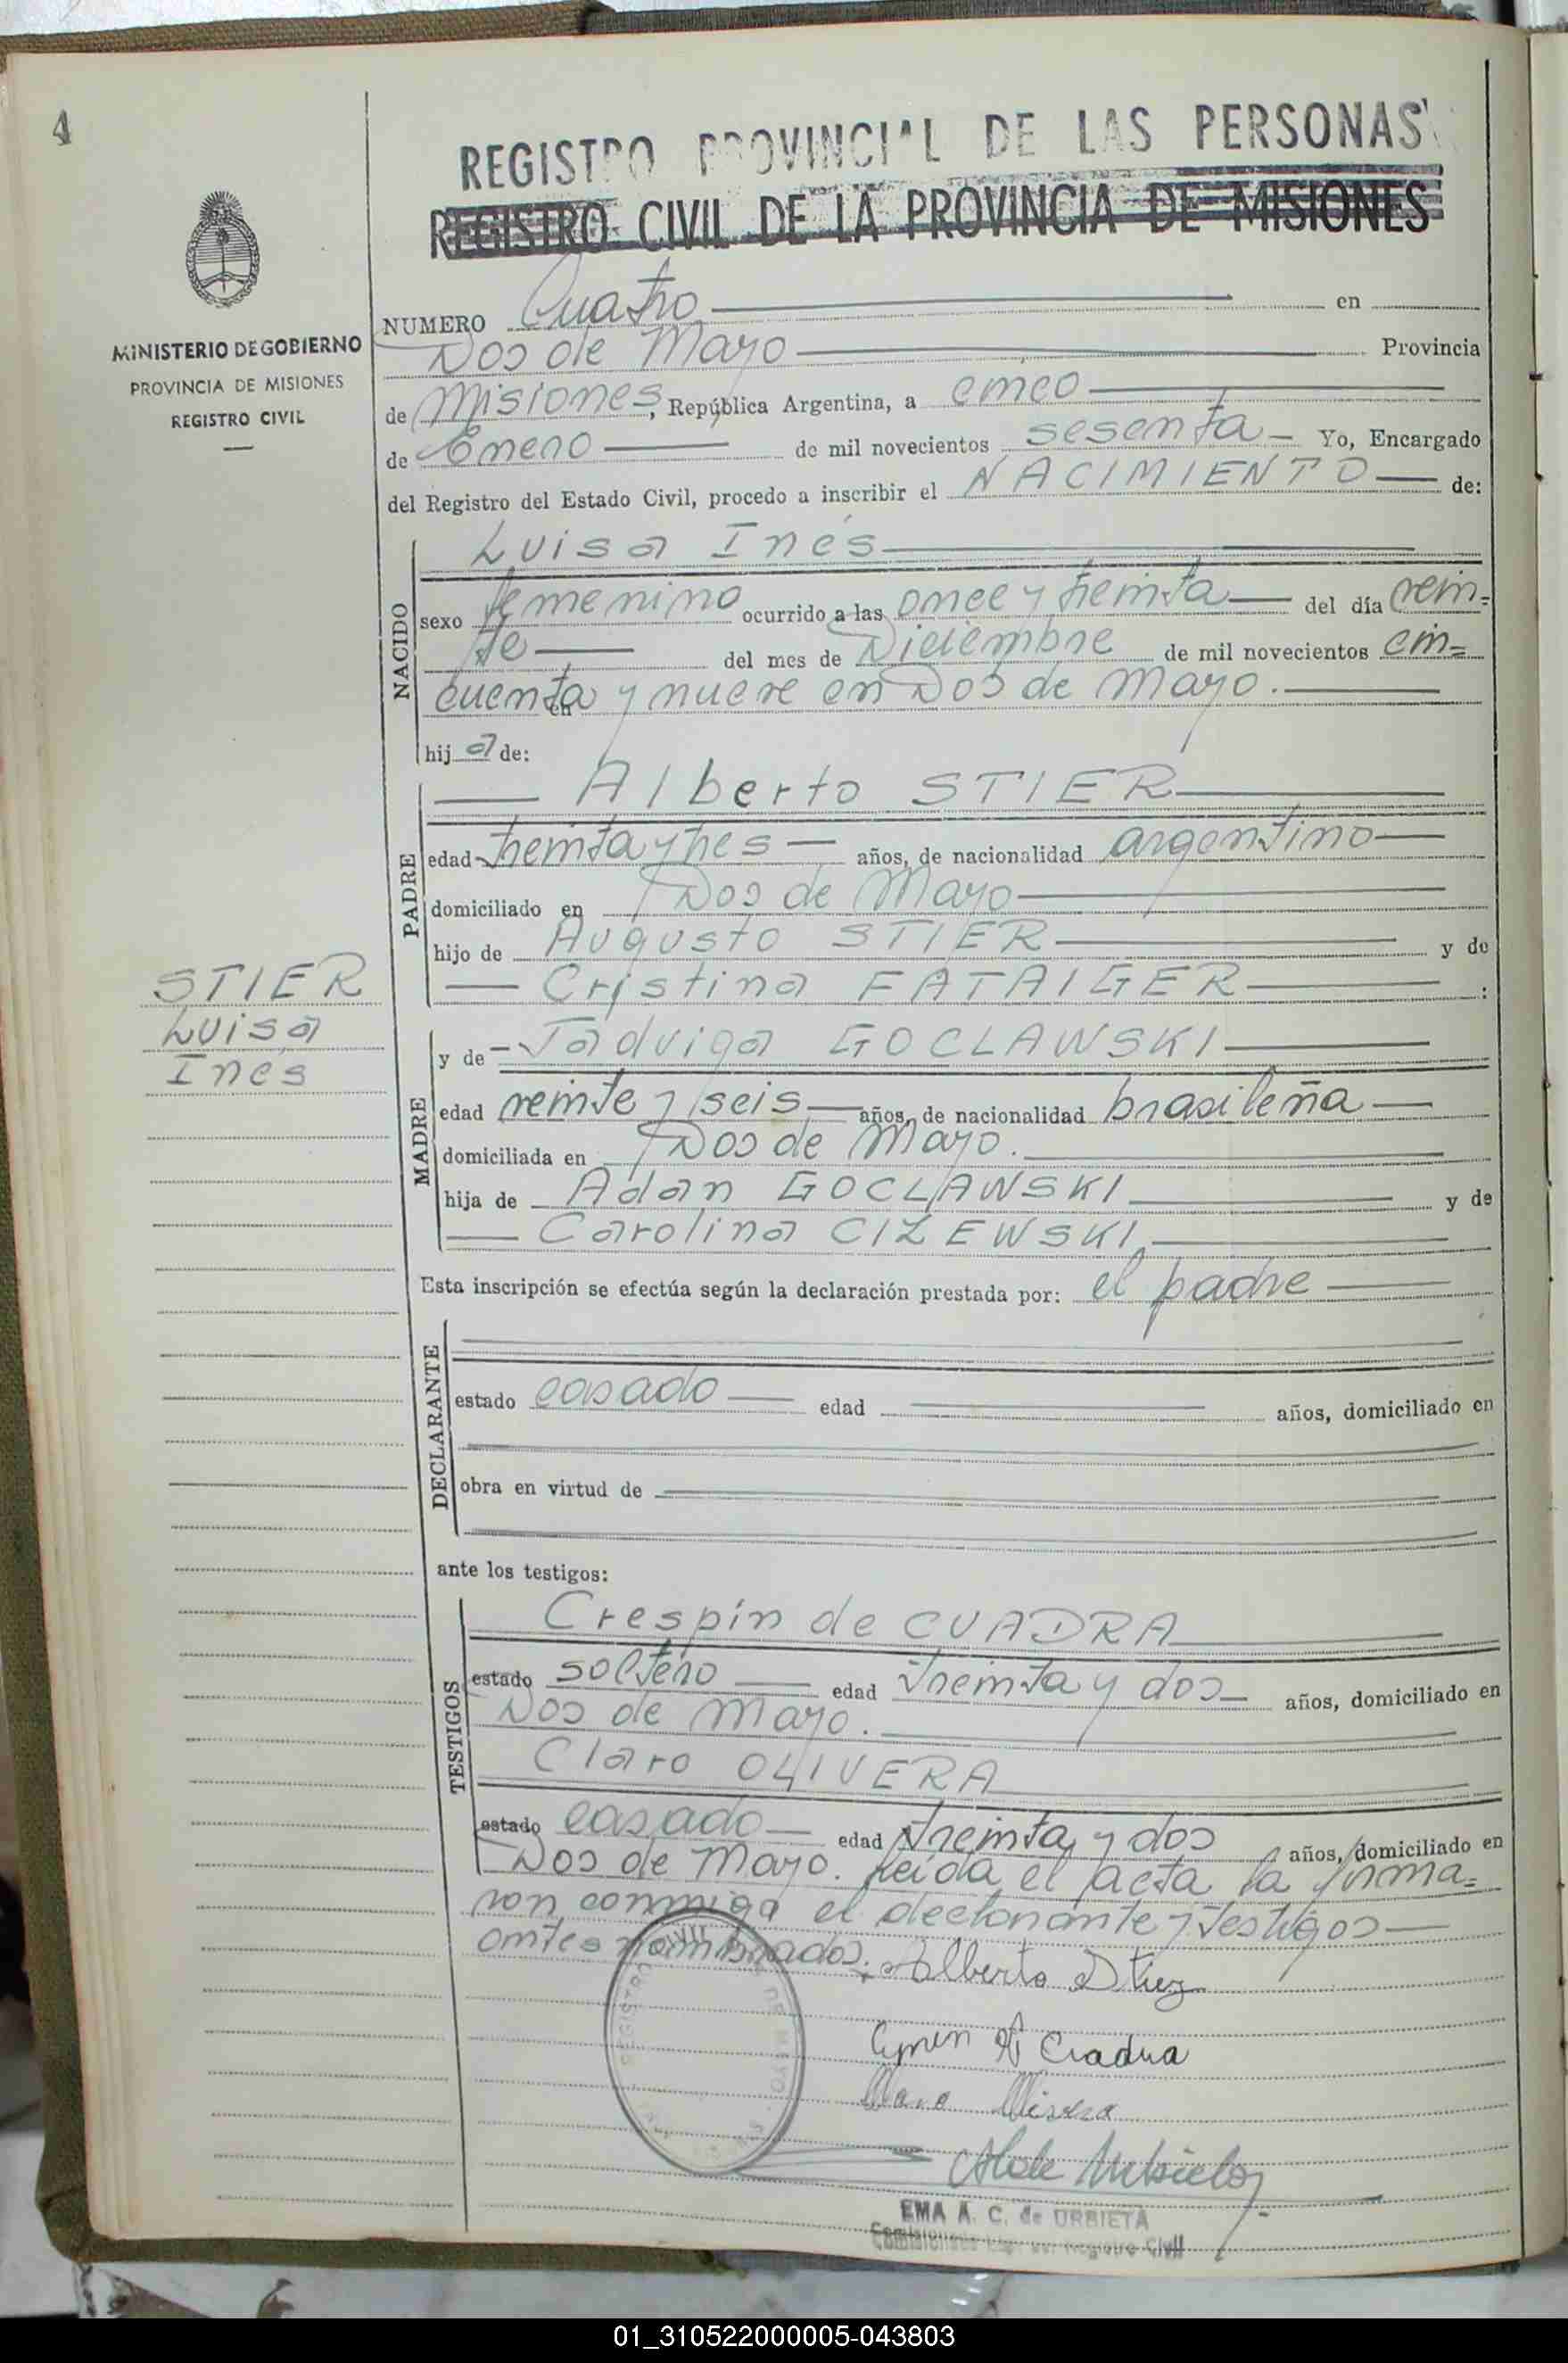 4
REGISTRO PROVINCIAL DE LAS PERSONAS
REGISTRO CIVIL DE LA PROVINCIA DE MISIONES
MINISTERIO DE GOBIERNO
PROVINCIA DE MISIONES
REGISTRO CIVIL
NUMERO Cuatro en
Dos de Mayo Provincia
de Misiones, República Argentina, a cinco
de Enero de mil novecientos sesenta Yo, Encargado
del Registro del Estado Civil, procedo a inscribir el NACIMIENTO de:
NACIDO
Luisa Inés
sexo femenino ocurrido a las once y treinta del día vein=
te del mes de Diciembre de mil novecientos cin=
en
cuenta y nueve en Dos de Mayo.
hija de:
PADRE
Alberto STIER
edad treinta y tres años, de nacionalidad argentino
domiciliado en Dos de Mayo
hijo de Augusto STIER y de
Cristina FATAIGER :
STIER
Luisa
Inés
MADRE
y de Jadviga GOCLAWSKI
edad veinte y seis años, de nacionalidad brasileña
domiciliada en Dos de Mayo.
hija de Adan GOCLAWSKI y de
Carolina CIZEWSKI
Esta inscripción se efectúa según la declaración prestada por: el padre
DECLARANTE
estado casado edad años, domiciliado en
obra en virtud de
ante los testigos:
TESTIGOS
Crespín de CUADRA
estado soltero edad treinta y dos años, domiciliado en
Dos de Mayo.
Claro OLIVERA
estado casado edad treinta y dos años, domiciliado en
Dos de Mayo. Leída el acta la firma=
ron conmigo el declarante y testigos
antes nombrados:
Alberto Stier
Cuadra
Olivera
EMA A. C. de URBIETA
Registro Civil
REGISTRO CIVIL
DE MAYO
01_310522000005-043803